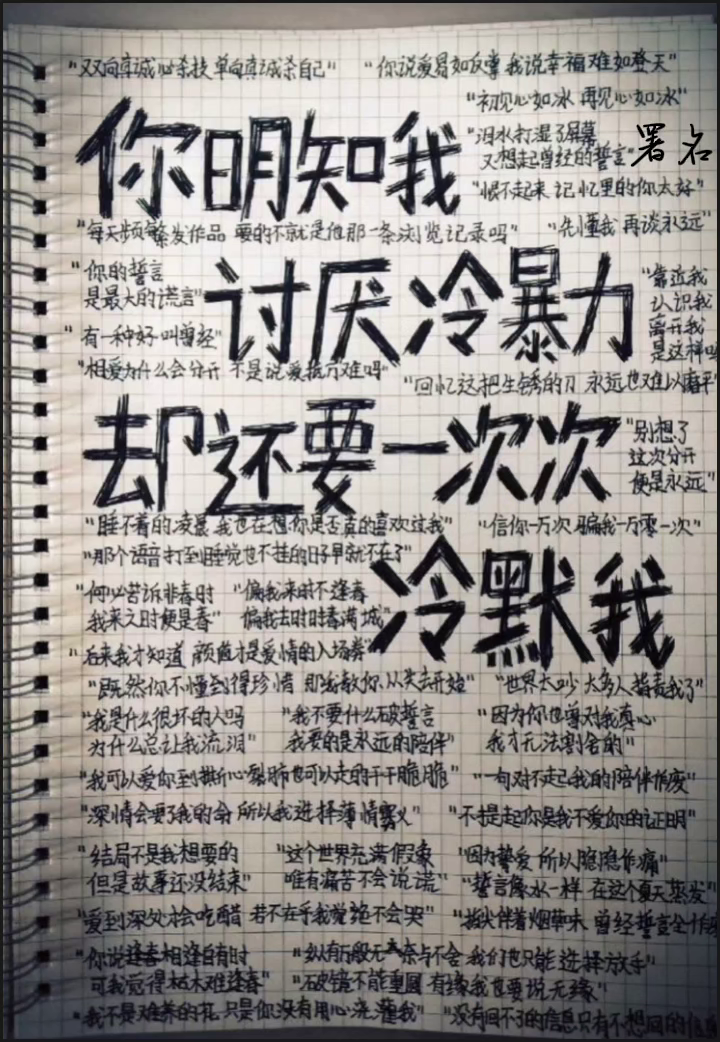 "双向真诚必杀技 单向真诚杀自己" "你说爱易如反掌 我说幸福难如登天"
"初见心如冰 再见心如冰"
你明知我
"泪水打湿了屏幕
又想起曾经的誓言"
署名
"恨不起来 记忆里的你太好"
"每天频繁发作品 要的不就是他那一条浏览记录吗" "先懂我 再谈永远"
"你的誓言
是最大的谎言"
讨厌冷暴力
"靠近我
认识我
离开我
是这样吗
"有一种好 叫曾经"
"相爱为什么会分开 不是说爱抵万难吗"
"回忆这把生锈的刀 永远也难以痛平
却还要一次次
"别想了
这次分开
便是永远"
"睡不着的凌晨 我也在想你是否真的喜欢过我" "信你一万次 骗我一万零一次"
"那个语音打到睡觉也不挂的日子早就不在了"
冷默我
"何必苦诉非春时
我来之时便是春"
"偏我来时不逢春
偏我去时时春满城"
"后来我才知道 颜值才是爱情的入场券"
"既然你不懂到得珍惜 那我教你从失去开始" "世界太吵 太多人指责我了"
"我是什么很坏的人吗
为什么总让我流泪"
"我不要什么破誓言
我要的是永远的陪伴"
"因为你也曾对我真心
我才无法割舍的"
"我可以爱你到撕心裂肺也可以走的干干脆脆" "一句对不起我的陪伴作废"
"深情会要了我的命 所以我选择薄情寡义" "不提起你是我不爱你的证明"
"结局不是我想要的
但是故事还没结束"
"这个世界充满假象
唯有痛苦不会说谎"
"因为挚爱 所以隐隐作痛"
"誓言像水一样 在这个夏天蒸发"
"爱到深处才会吃醋 若不在乎我觉绝不会哭" "指尖伴着烟草味 曾经誓言全作
"你说逢春相逢自有时
可我觉得枯木难逢春"
"纵有万般无奈与不舍 我们也只能选择放手"
"破镜不能重圆 有缘我也要说无缘"
"我不是难养的花 只是你没有用心浇灌我" "没有回不了的信息只有不想回的信息